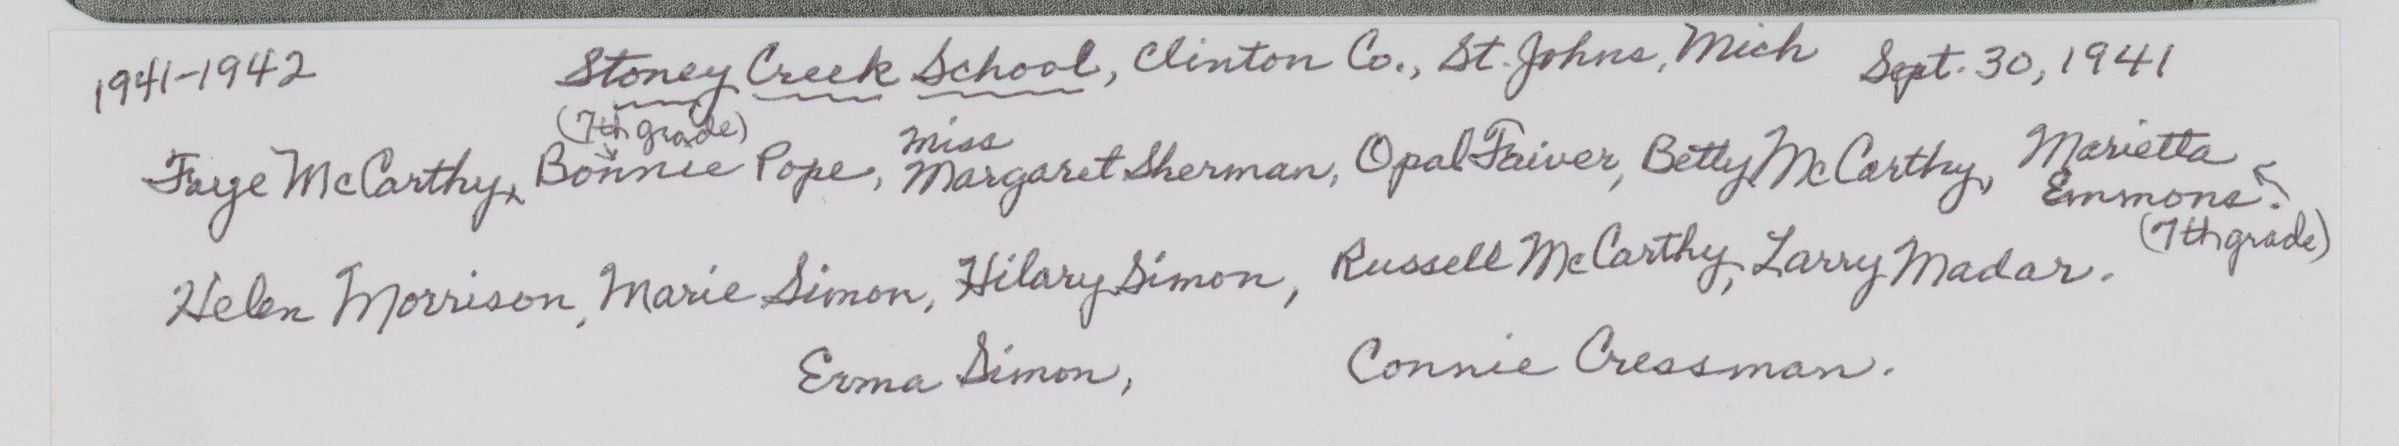 1941-1942 Stoney Creek School, Clinton Co., St. Johns, Mich Sept. 30, 1941
(7th grade)
Faye McCarthy, Bonnie Pope, Miss Margaret Sherman, Opal Faiver, Betty McCarthy, Marietta Emmons.
(7th grade)
Helen Morrison, Marie Simon, Hilary Simon, Russell McCarthy, Larry Madar.
Erma Simon, Connie Cressman.